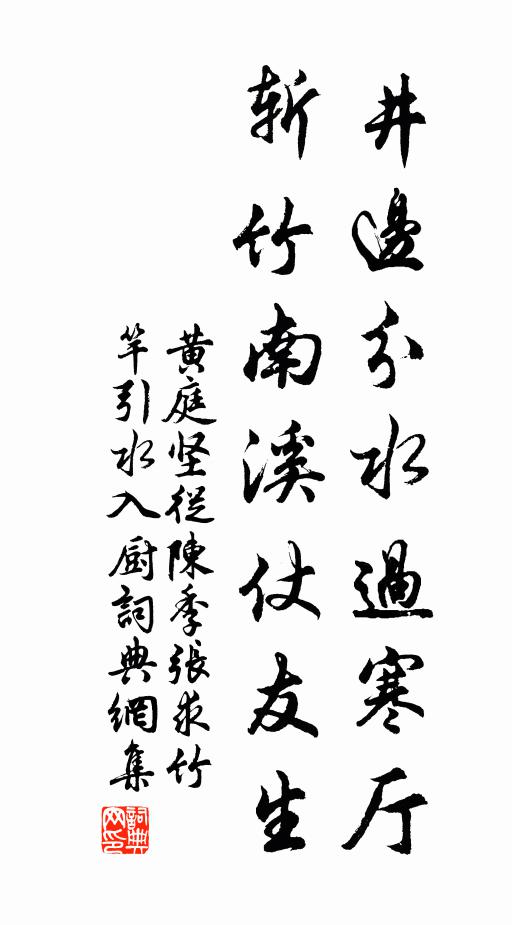 井邊分水過寒厅
斩竹南溪仗友生
黄庭坚從陳季張求竹
竿引水入厨詞典網集
詞典
网印